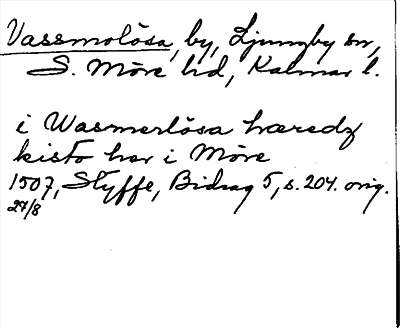 Vassmolösa, by, Ljungby sn,
S. Möre hd, Kalmar l.
i Wasmerlösa hæredz
kisto her i Möre
1507, Styffe, Bidrag 5, s. 204. orig.
27/8